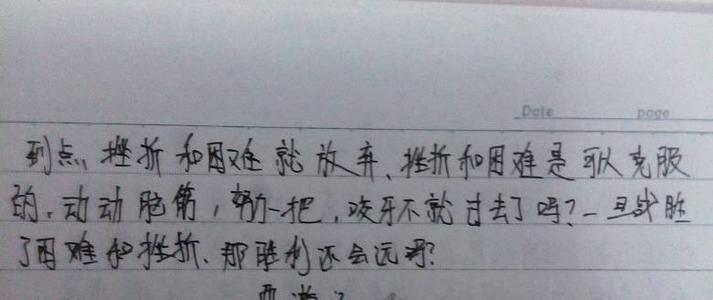 Date page
到点、挫折和困难就放弃、挫折和困难是可以克服
的、动动脑筋，努力一把，咬牙不就过去了吗？一旦战胜
了困难和挫折、那胜利还会远吗？